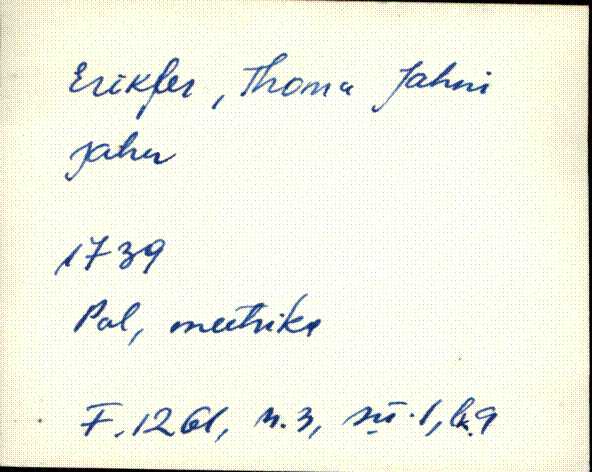 Erikfer, Thoma Jahni
Jahn
1739
Pal, meetrika
F. 1261, n. 3, sü. 1, lk. 9